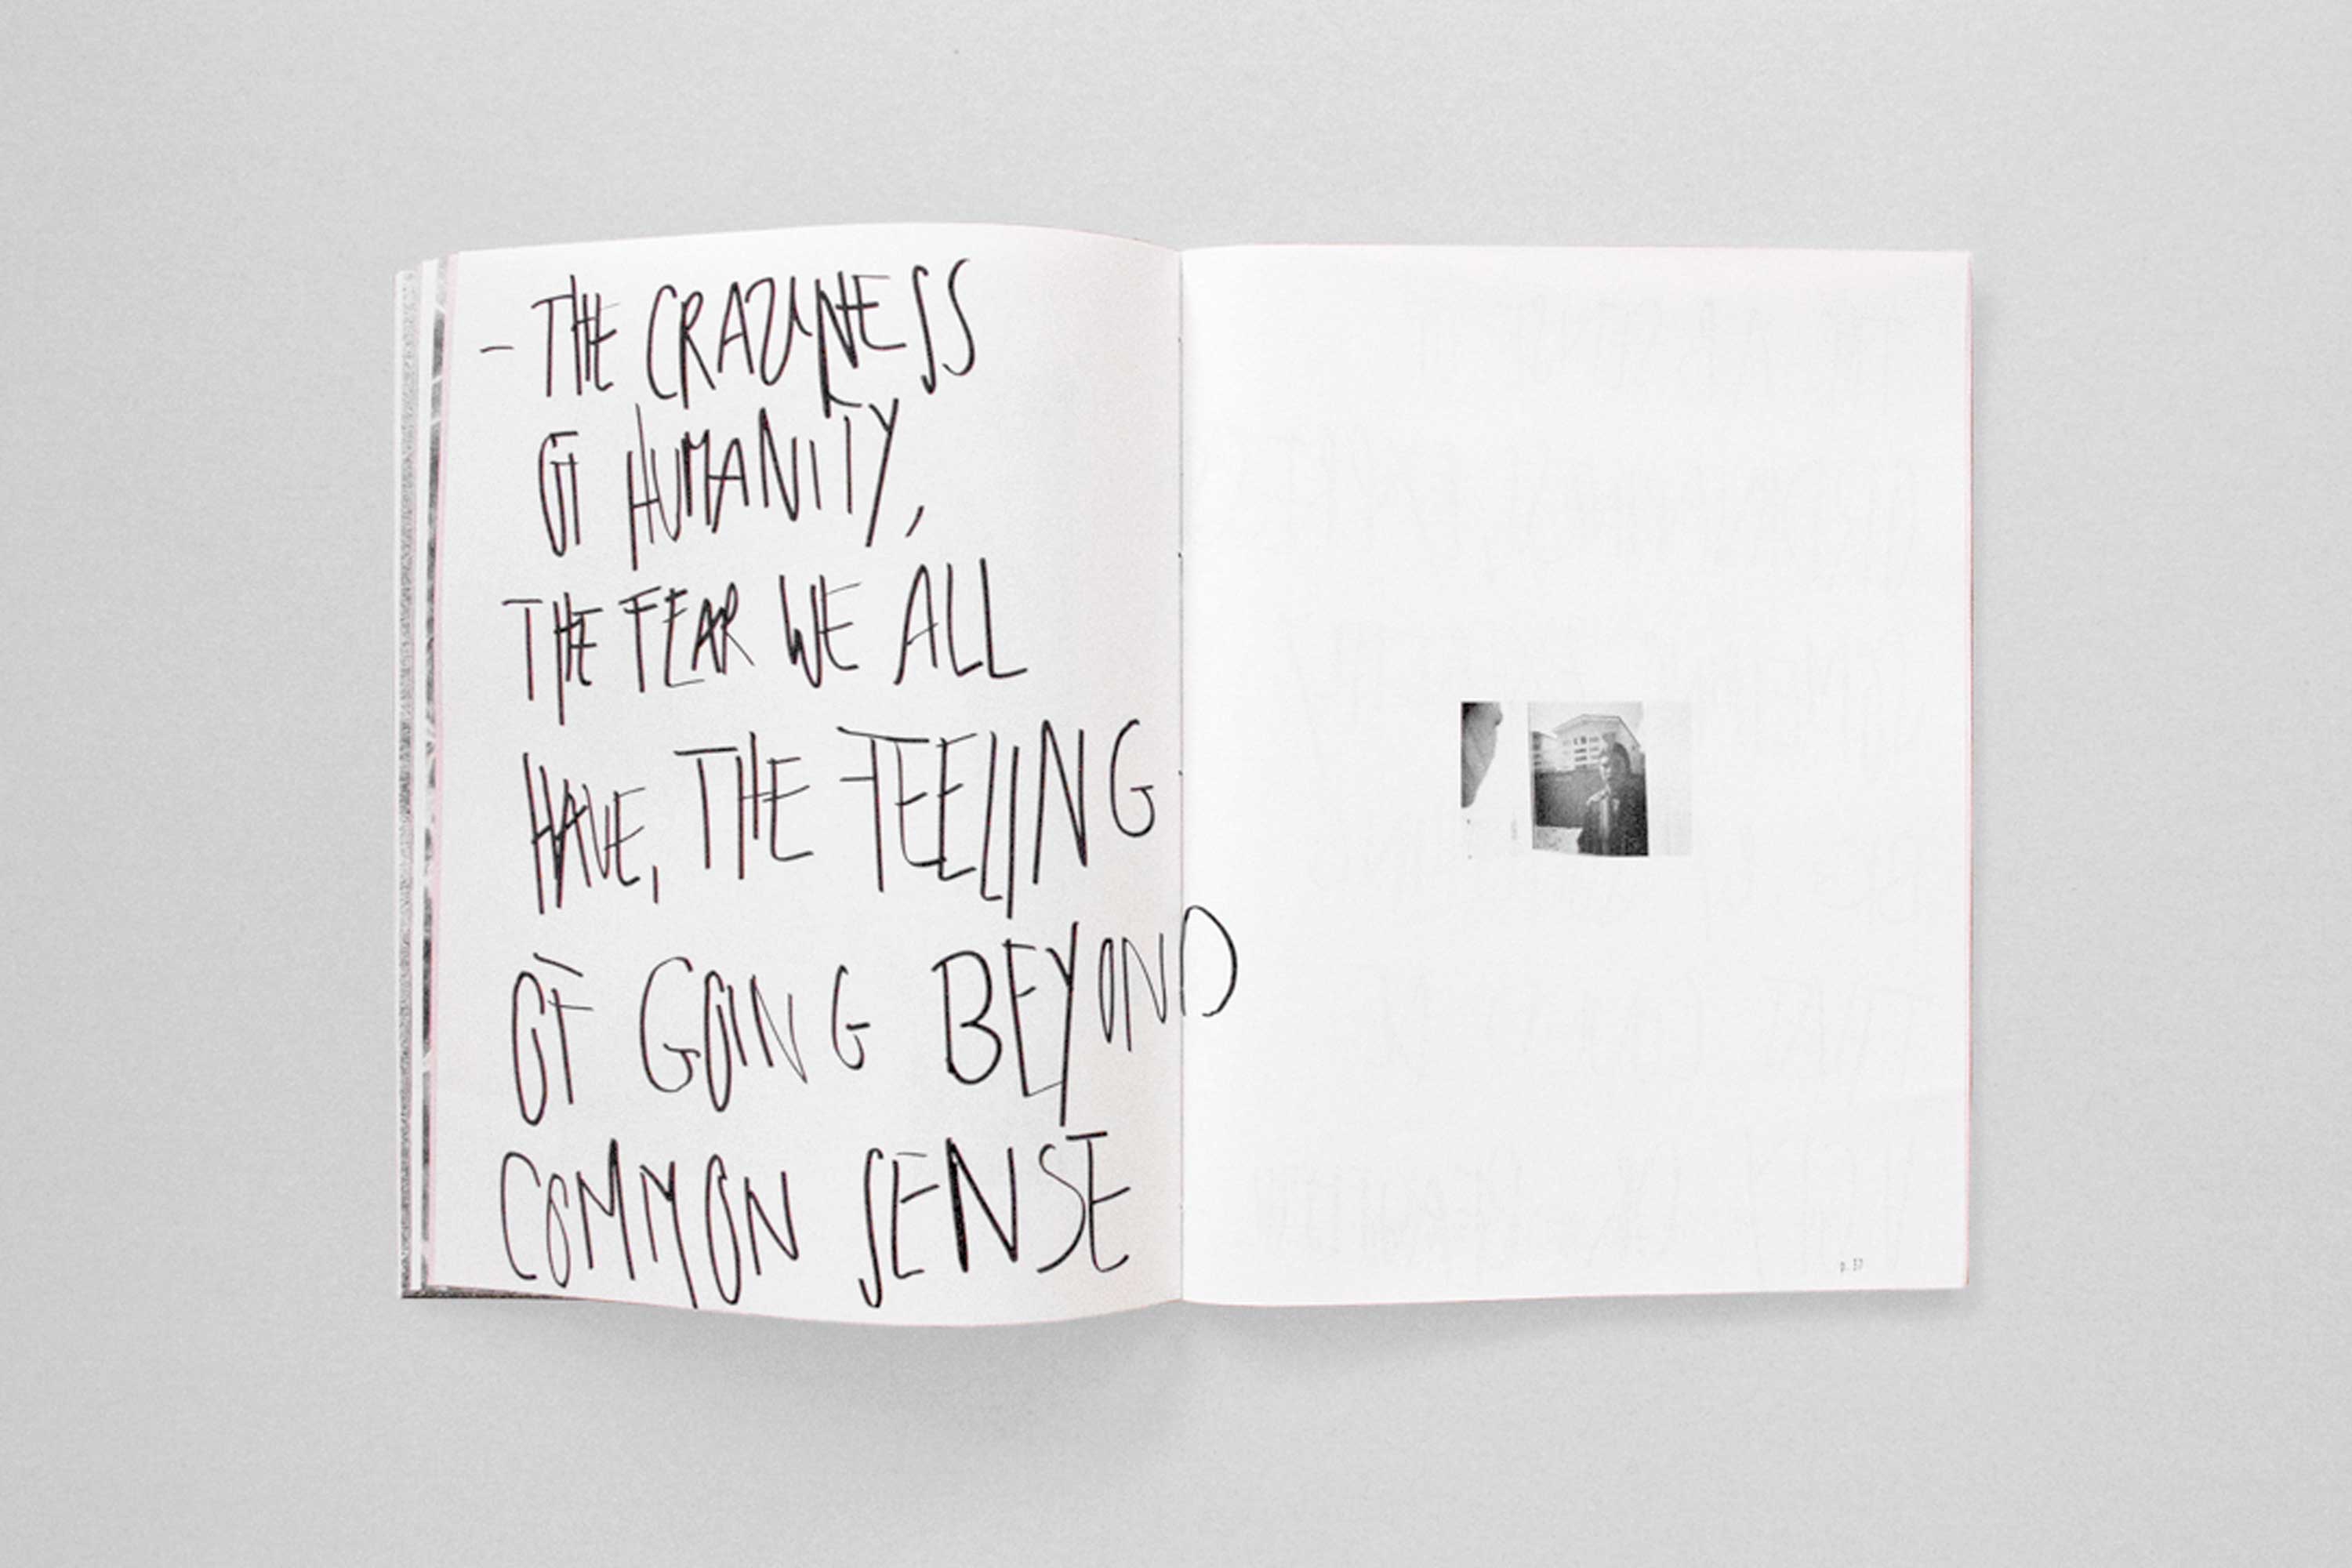 - THE CRAZYNESS
OF HUMANITY,
THE FEAR WE ALL
HAVE, THE FEELING
OF GOING BEYOND
COMMON SENSE
p. 37